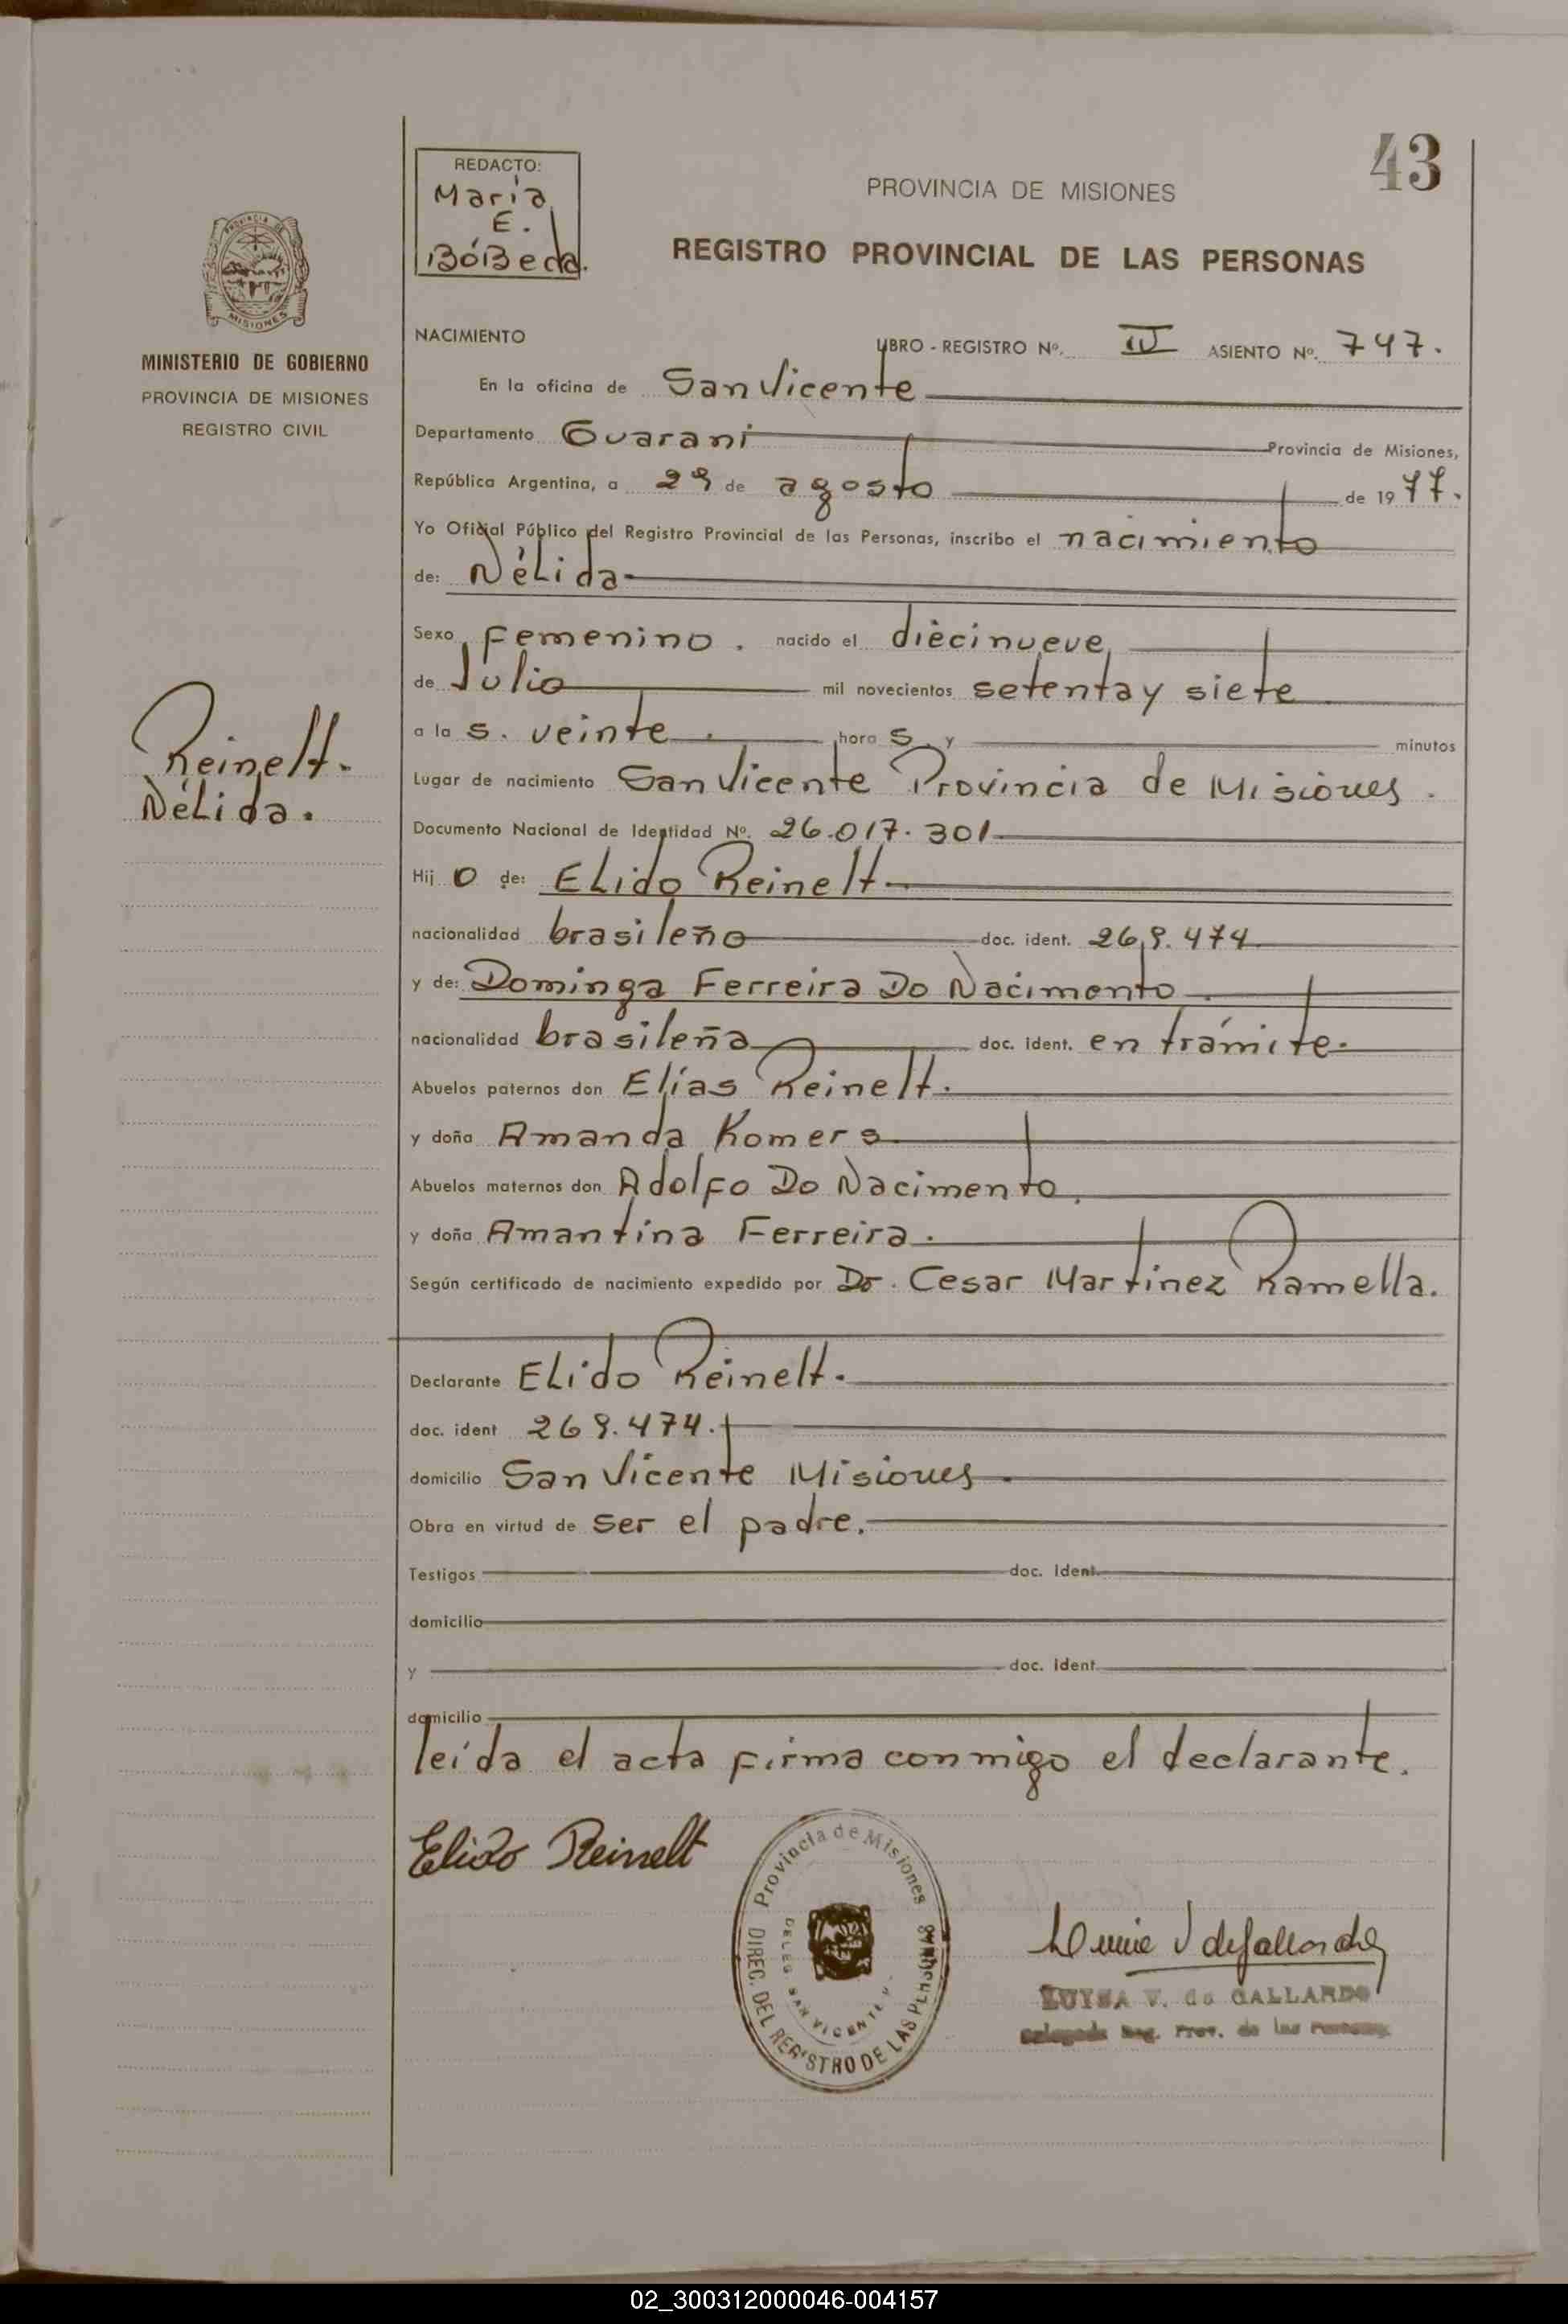 43
REDACTO:
María
E.
BóBeda.
PROVINCIA DE MISIONES
REGISTRO PROVINCIAL DE LAS PERSONAS
MISIONES
MINISTERIO DE GOBIERNO
PROVINCIA DE MISIONES
REGISTRO CIVIL
NACIMIENTO
LIBRO - REGISTRO Nº. IV ASIENTO Nº. 747.
En la oficina de San Vicente
Departamento Guaraní Provincia de Misiones,
República Argentina, a 29 de agosto de 19 77.
Yo Oficial Público del Registro Provincial de las Personas, inscribo el nacimiento
de: Nélida
Sexo femenino. nacido el diecinueve
de Julio mil novecientos setenta y siete
a la s. veinte. hora s y minutos
Reinelt.
Nélida.
Lugar de nacimiento San Vicente Provincia de Misiones.
Documento Nacional de Identidad Nº. 26.017.301
Hij o de: Elido Reinelt.
nacionalidad brasileño doc. ident. 269.474
y de: Dominga Ferreira Do Nacimento.
nacionalidad brasileña doc. ident. en trámite.
Abuelos paternos don Elías Reinelt.
y doña Amanda Komers
Abuelos maternos don Adolfo Do Nacimento.
y doña Amantina Ferreira.
Según certificado de nacimiento expedido por Dr. Cesar Martinez Ramella.
Declarante Elido Reinelt.
doc. ident 269.474.
domicilio San Vicente Misiones.
Obra en virtud de ser el padre.
Testigos doc. Ident.
domicilio
y doc. ident.
domicilio
leída el acta firma conmigo el declarante.
Elido Reinelt
Provincia de Misiones
DIREC. DEL REGISTRO DE LAS PERSONAS
DELEG. SAN VICENTE
LUISA V. de GALLARDO
Delegada Reg. Prov. de las Personas
02_300312000046-004157